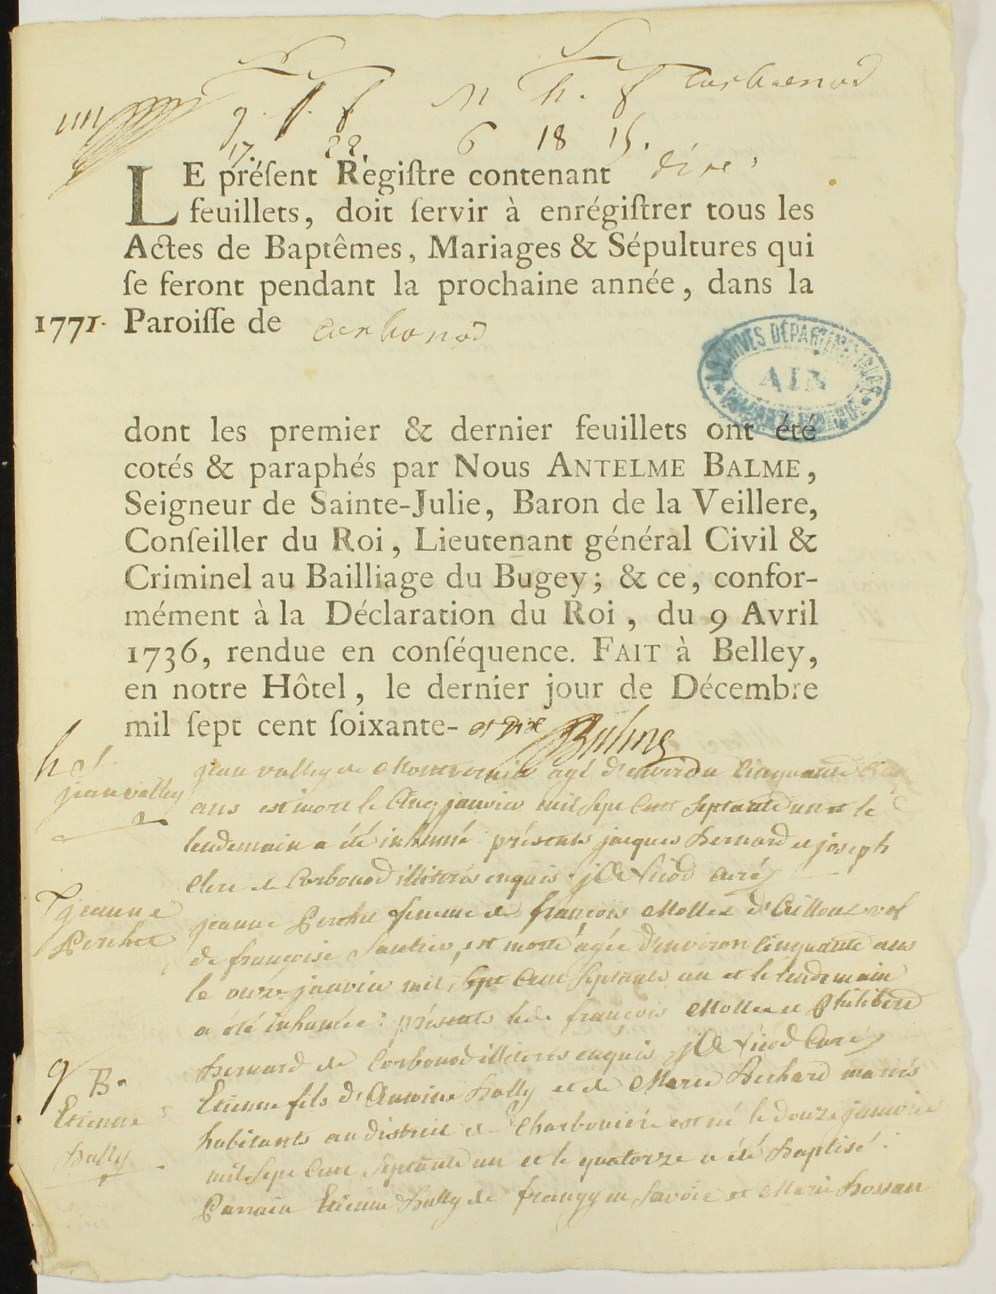 g. f. f m h. f Corbonod
17. 22. 6 18 15.
LE préſent Regiſtre contenant dixe
feuillets, doit ſervir à enrégiſtrer tous les
Actes de Baptêmes, Mariages & Sépultures qui
ſe feront pendant la prochaine année, dans la
1771. Paroiſſe de Corbonod
ARCHIVES DÉPARTEMENTALES
AIN
dont les premier & dernier feuillets ont été
cotés & paraphés par Nous ANTELME BALME,
Seigneur de Sainte-Julie, Baron de la Veillere,
Conſeiller du Roi, Lieutenant général Civil &
Criminel au Bailliage du Bugey; & ce, confor-
mément à la Déclaration du Roi, du 9 Avril
1736, rendue en conſéquence. FAIT à Belley,
en notre Hôtel, le dernier jour de Décembre
mil ſept cent ſoixante- et dix Balme
jean valley
jean valley de agé d'environ Cinquante
ans est mort le janvier mil sept Cent septante un et le
lendemain a été inhumé présents jacques Bernard et joseph
de Corbonod illiterés enquis Curé
jeanne
Perchet
jeanne Perchet femme de françois Mollex
de françoise est morte agée d'environ Cinquante ans
le onze janvier mil Sept Cent septante un et le lendemain
a été inhumée: présents françois Mollex et Philibert
Bernard de Corbonod illiterés enquis Curé
B.
Etienne
Bally
Etienne fils d'Antoine Bally et de Marie mariés
habitants au district de Charboniere est né le douze janvier
mil sept Cent Septante un et le quatorze a été Baptisé.
Parrain Etienne Bally de frangy en Savoie et Marie Bossan